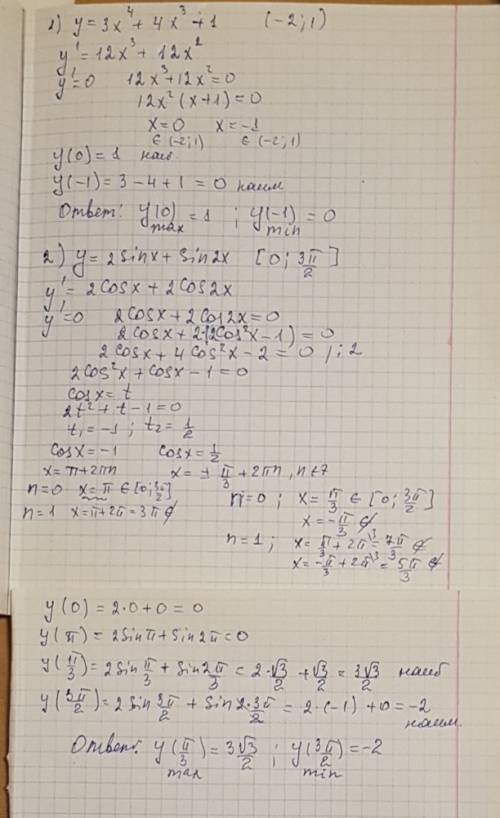 1) y = 3x⁴ + 4x³ + 1 (-2; 1)
y' = 12x³ + 12x²
y' = 0 12x³ + 12x² = 0
12x² (x+1) = 0
x = 0 x = -1
∈ (-2; 1) ∈ (-2; 1)
y(0) = 1 наиб
y(-1) = 3 - 4 + 1 = 0 наим
Ответ: y(0) = 1 ; y(-1) = 0
max min
2) y = 2sinx + sin2x [0; 3π/2]
y' = 2cosx + 2cos2x
y' = 0 2cosx + 2cos2x = 0
2cosx + 2(2cos²x - 1) = 0
2cosx + 4cos²x - 2 = 0 /: 2
2cos²x + cosx - 1 = 0
cosx = t
2t² + t - 1 = 0
t₁ = -1 ; t₂ = 1/2
cosx = -1 cosx = 1/2
x = π + 2πn x = ± π/3 + 2πn, n∈Z
n = 0 x = π ∈ [0; 3π/2] n = 0 ; x = π/3 ∈ [0; 3π/2]
x = -π/3 ∉
n = 1 x = π + 2π = 3π ∉ n = 1 ; x = π/3 + 2π\3 = 7π/3 ∉
x = -π/3 + 2π\3 = 5π/3 ∉
y(0) = 2·0 + 0 = 0
y(π) = 2sinπ + sin2π = 0
y(π/3) = 2sin π/3 + sin 2π/3 = 2·√3/2 + √3/2 = 3√3/2 наиб
y(3π/2) = 2sin 3π/2 + sin 2·3π/2 = 2·(-1) + 0 = -2
наим.
Ответ: y(π/3) = 3√3/2 ; y(3π/2) = -2
max min